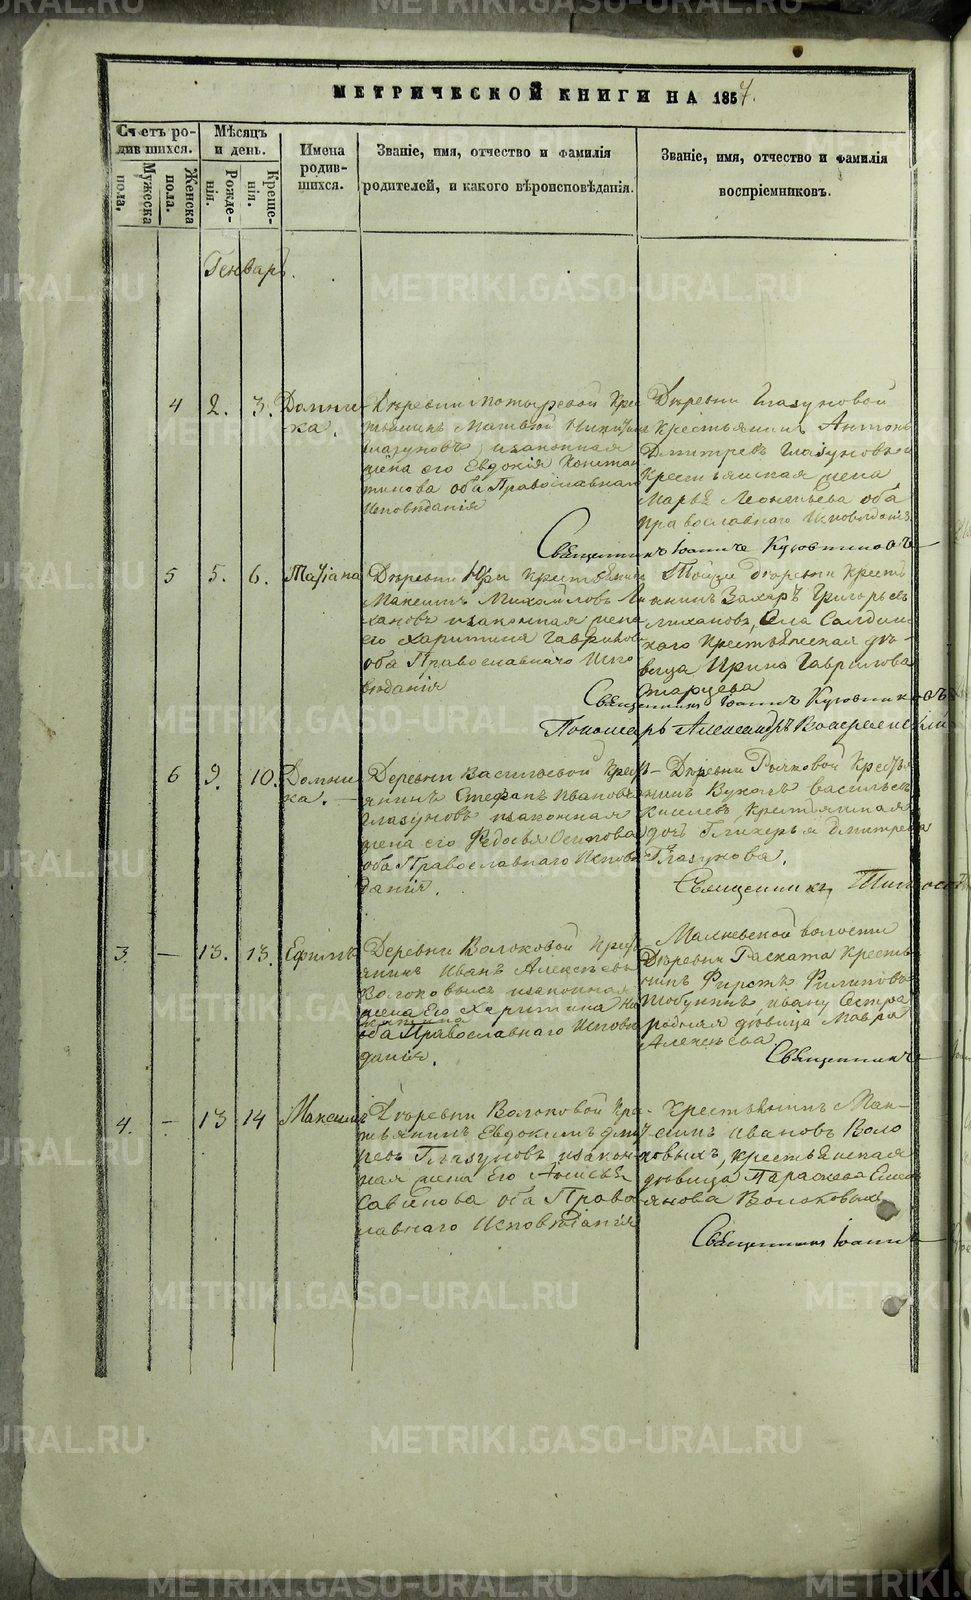 МЕТРИЧЕСКОЙ КНИГИ НА 1857.
Счетъ родившихся.
Мужеска пола.
Женска пола.
Мѣсяцъ и день.
Рожденія.
Крещенія.
Имена родив-
шихся.
Званіе, имя, отчество и фамилія
родителей, и какого вѣроисповѣданія.
Званіе, имя, отчество и фамилія
воспріемниковъ.
Генварь.
4 2. 3. Домни-
ка.
Деревни Мотыревой Кре
стьянинъ Матвѣй
Глазуновъ и законная
жена его Евдокія Констан
тинова оба Православнаго
Исповѣданія
Деревни Глазуновой
Крестьянинъ Антонъ
Дмитревъ Глазуновъ и
Крестьянская жена
Марья Леонтьева оба
Православнаго Исповѣданія
Священникъ Іоаннъ
5 5. 6. Татіана
Деревни Крестьянинъ
Максимъ Михайловъ Ли
хановъ и законная жена
его Харитина Гаврилова
оба Православнаго Испо
вѣданія
Тойже деревни Крестья
нинъ Захаръ Григорьевъ
Лихановъ, Села Салдин
скаго Крестьянская дѣ-
вица Ирина Гаврилова
Старцева
Священникъ Іоаннъ
Пономарь Александръ
6 9. 10. Домни
ка.
Деревни Васильевой Крест-
янинъ Стефанъ Ивановъ
Глазуновъ и законная
жена его Федосья Осипова
оба Православнаго Исповѣ
данія.
Деревни Крестья
нинъ Вуколъ Васильевъ
Киселевъ, Крестьянская
дочь Гликерья Дмитрева
Глазунова.
Священникъ
3. — 13. 13. Ефимъ
Деревни Волоковой Крест
янинъ Иванъ Алексѣевъ
Волоковыхъ и законная
жена Его Харитина
оба Православнаго Исповѣ
данія.
волости
Деревни Раската Крестья
нинъ Филиповъ
Ивану Сестра
родная дѣвица Мавра
Алексѣева.
Священникъ
4. — 13 14 Максимъ
Деревни Волоковой Кре-
стьянинъ Евдокимъ Дмит
ревъ Глазуновъ и закон-
ная жена Его Анисья
Савинова оба Право
славнаго Исповѣданія
Крестьянинъ Мак-
симъ Ивановъ Воло
ковыхъ, Крестьянская
дѣвица Параскева
Волоковыхъ
Священникъ Іоаннъ
METRIKI.GASO-URAL.RU